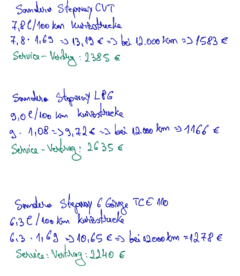 Sandero Stepway CVT
7,8 l/100 km kurzstrecke
7,8 · 1,69 => 13,19 € => bei 12.000 km => 1583 €
Service-Vertrag: 2385 €
Sandero Stepway LPG
9,0 l/100 km kurzstrecke
9 · 1,08 => 9,72 € => bei 12.000 km => 1166 €
Service-Vertrag: 2635 €
Sandero Stepway 6 Gänge TCE 110
6,3 l/100 km kurzstrecke
6,3 · 1,69 => 10,65 € => bei 12000 km = 1278 €
Service-Vertrag: 2240 €